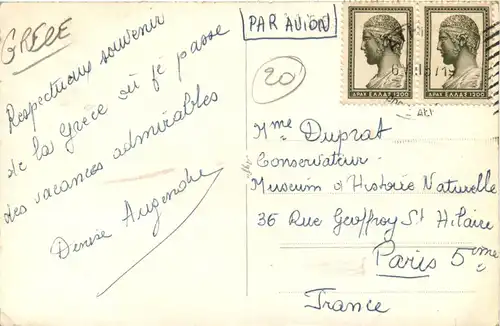 GRÈCE
Respectueux souvenir
de la Grèce où je passe
des vacances admirables
Denise
PAR AVION
20
ΔΡΑΧ ΕΛΛΑΣ 1200
ΔΡΑΧ ΕΛΛΑΣ 1200
Mme Duprat
Conservateur
Museum d'Histoire Naturelle
36 Rue Geoffroy St Hilaire
Paris 5ème
France